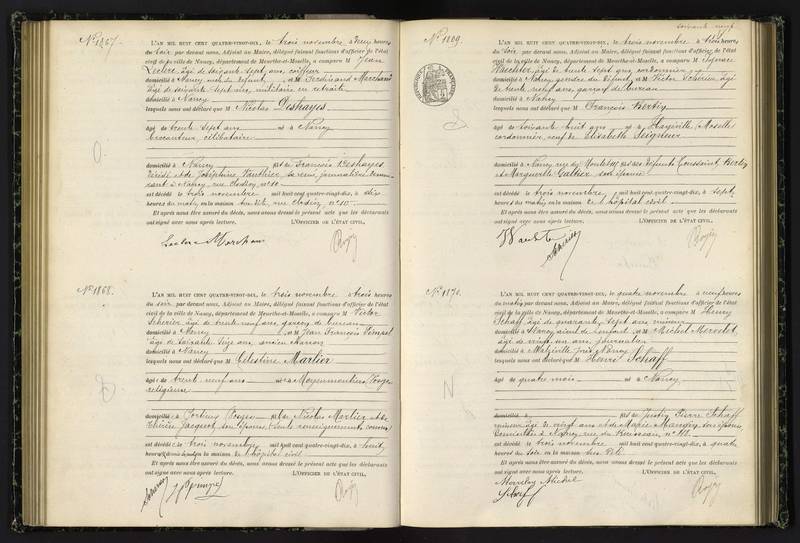 N° 1867.
L'AN MIL HUIT CENT QUATRE-VINGT-DIX, le trois novembre, à heures
du soir par devant nous, Adjoint au Maire, délégué faisant fonctions d'officier de l'état
civil de la ville de Nancy, département de Meurthe-et-Moselle, a comparu M Jean
Leclerc, âgé de soixante sept ans, coiffeur
domicilié à Nancy, du défunt, et M Ferdinand Marchand
âgé de soixante sept ans, militaire en retraite
domicilié à Nancy
lesquels nous ont déclaré que M Nicolas Deshayes
âgé de trente sept ans né à Nancy
brocanteur, célibataire
domicilié à Nancy fils de François Deshayes
décédé et de Joséphine sa veuve, journalière demeu-
rant à Nancy, rue n° 10
est décédé le trois novembre mil huit cent quatre-vingt-dix, à dix
heures du matin en la maison rue n° 10
Et après nous être assuré du décès, nous avons dressé le présent acte que les déclarants
ont signé avec nous après lecture. L'OFFICIER DE L'ÉTAT CIVIL,
N° 1868.
L'AN MIL HUIT CENT QUATRE-VINGT-DIX, le trois novembre à trois heures
du soir par devant nous, Adjoint au Maire, délégué faisant fonctions d'officier de l'état
civil de la ville de Nancy, département de Meurthe-et-Moselle, a comparu M Victor
âgé de trente neuf ans, garçon de bureau
domicilié à Nancy et M Jean François
âgé de soixante seize ans, ancien
domicilié à Nancy
lesquels nous ont déclaré que M Célestine Martier
âgée de trente neuf ans née à Moyenmoutier, Vosges
religieuse
domiciliée à Portieux Vosges fille de Nicolas Martier et de
Thérèse Jacquot, son épouse (seuls renseignements connus)
est décédée le trois novembre mil huit cent quatre-vingt-dix, à huit
heures en la maison de l'hôpital civil
Et après nous être assuré du décès, nous avons dressé le présent acte que les déclarants
ont signé avec nous après lecture. L'OFFICIER DE L'ÉTAT CIVIL,
soixante neuf
N° 1869.
L'AN MIL HUIT CENT QUATRE-VINGT-DIX, le trois novembre, à trois heures
du soir par devant nous, Adjoint au Maire, délégué faisant fonctions d'officier de l'état
civil de la ville de Nancy, département de Meurthe-et-Moselle, a comparu M
âgé de trente sept ans, cordonnier
domicilié à Nancy, gendre du défunt, et M Victor âgé
de trente neuf ans, garçon de bureau
domicilié à Nancy
lesquels nous ont déclaré que M François Bertin
âgé de soixante huit ans né à Hayéville, Moselle
cordonnier, veuf de Elisabeth Seigneur
domicilié à Nancy, rue de fils des défunts Toussaint Bertin
et Marguerite son épouse
est décédé le trois novembre mil huit cent quatre-vingt-dix, à sept
heures du matin en la maison de l'hôpital civil
Et après nous être assuré du décès, nous avons dressé le présent acte que les déclarants
ont signé avec nous après lecture. L'OFFICIER DE L'ÉTAT CIVIL,
N° 1870.
L'AN MIL HUIT CENT QUATRE-VINGT-DIX, le quatre novembre à neuf heures
du matin par devant nous, Adjoint au Maire, délégué faisant fonctions d'officier de l'état
civil de la ville de Nancy, département de Meurthe-et-Moselle, a comparu M Henry
Schaff, âgé de quarante sept ans, mineur
domicilié à Nancy, aïeul de l'enfant, et M Michel
âgé de vingt un ans, journalier
domicilié à Malzéville près Nancy
lesquels nous ont déclaré que M Henri Schaff
âgé de quatre mois né à Nancy
domicilié à fils de Pierre Schaff
mineur âgé de vingt ans et de Marie son épouse,
domiciliés à Nancy, rue du Ruisseau, n°
est décédé le trois novembre mil huit cent quatre-vingt-dix, à quatre
heures du soir en la maison
Et après nous être assuré du décès, nous avons dressé le présent acte que les déclarants
ont signé avec nous après lecture. L'OFFICIER DE L'ÉTAT CIVIL,